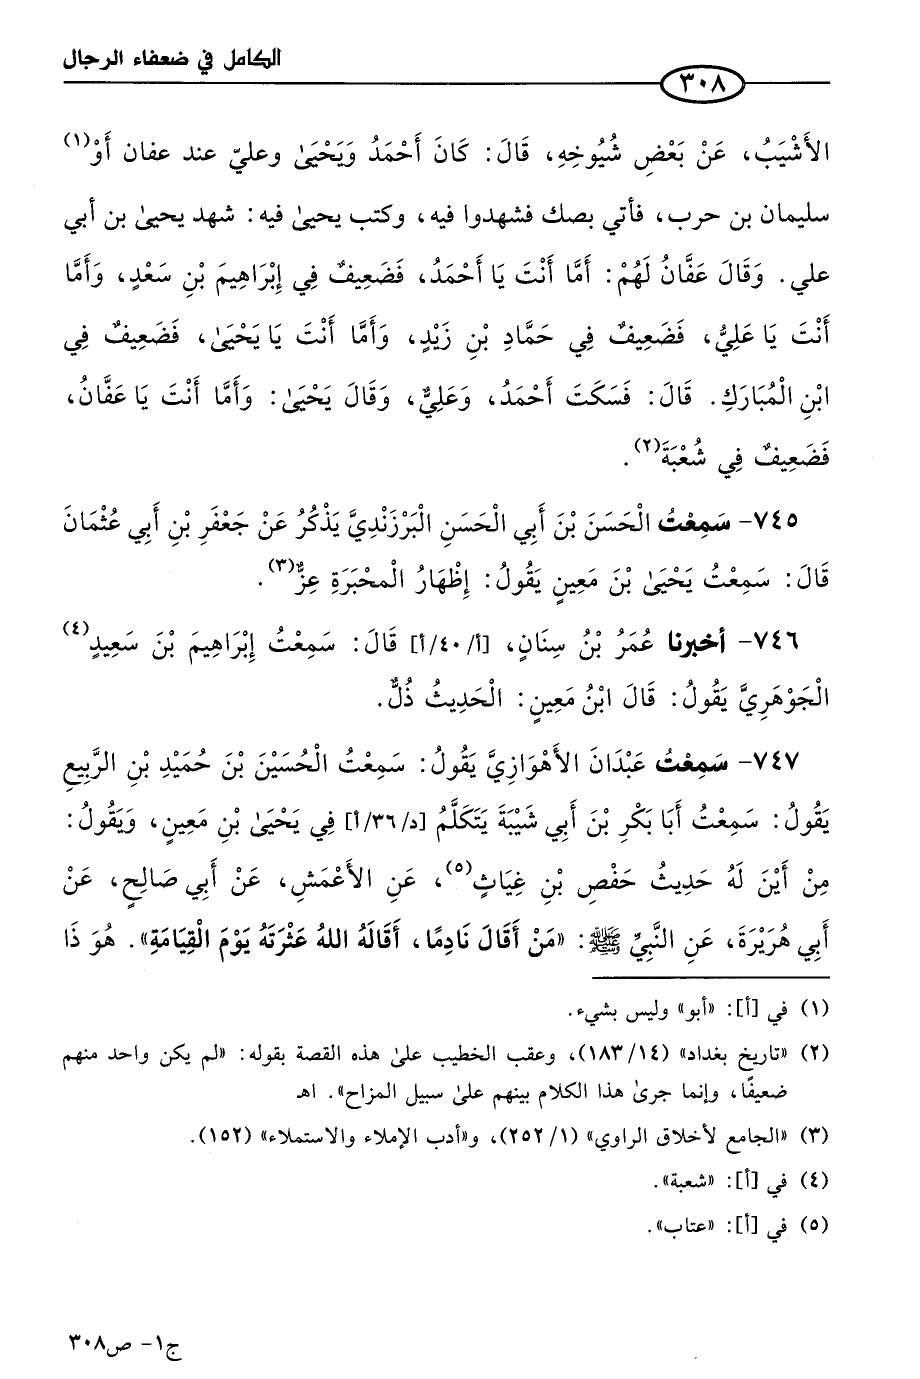 الكامل في ضعفاء الرجال
٣٠٨
الأَشْيَبُ، عَنْ بَعْضِ شُيُوخِهِ، قَالَ: كَانَ أَحْمَدُ وَيَحْيَىٰ وعليّ عند عفان أَوْ(١)
سليمان بن حرب، فأتي بصك فشهدوا فيه، وكتب يحيىٰ فيه: شهد يحيىٰ بن أبي
علي. وَقَالَ عَفَّانُ لَهُمْ: أَمَّا أَنْتَ يَا أَحْمَدُ، فَضَعِيفٌ فِي إِبْرَاهِيمَ بْنِ سَعْدٍ، وَأَمَّا
أَنْتَ يَا عَلِيُّ، فَضَعِيفٌ فِي حَمَّادِ بْنِ زَيْدٍ، وَأَمَّا أَنْتَ يَا يَحْيَىٰ، فَضَعِيفٌ فِي
ابْنِ الْمُبَارَكِ. قَالَ: فَسَكَتَ أَحْمَدُ، وَعَلِيٌّ، وَقَالَ يَحْيَىٰ: وَأَمَّا أَنْتَ يَا عَفَّانُ،
فَضَعِيفٌ فِي شُعْبَةَ(٢).
٧٤٥- سَمِعْتُ الْحَسَنَ بْنَ أَبِي الْحَسَنِ الْبَرْزَنْدِيَّ يَذْكُرُ عَنْ جَعْفَرِ بْنِ أَبِي عُثْمَانَ
قَالَ: سَمِعْتُ يَحْيَىٰ بْنَ مَعِينٍ يَقُولُ: إِظْهَارُ الْمحْبَرَةِ عِزٌّ(٣).
٧٤٦- أخبرنا عُمَرُ بْنُ سِنَانٍ، [أ/٤٠/أ] قَالَ: سَمِعْتُ إِبْرَاهِيمَ بْنَ سَعِيدٍ(٤)
الْجَوْهَرِيَّ يَقُولُ: قَالَ ابْنُ مَعِينٍ: الْحَدِيثُ ذُلٌّ.
٧٤٧- سَمِعْتُ عَبْدَانَ الأَهْوَازِيَّ يَقُولُ: سَمِعْتُ الْحُسَيْنَ بْنَ حُمَيْدِ بْنِ الرَّبِيعِ
يَقُولُ: سَمِعْتُ أَبَا بَكْرِ بْنَ أَبِي شَيْبَةَ يَتَكَلَّمُ [د/٣٦/أ] فِي يَحْيَىٰ بْنِ مَعِينٍ، وَيَقُولُ:
مِنْ أَيْنَ لَهُ حَدِيثُ حَفْصِ بْنِ غِيَاثٍ(٥)، عَنِ الأَعْمَشِ، عَنْ أَبِي صَالِحٍ، عَنْ
أَبِي هُرَيْرَةَ، عَنِ النَّبِيِّ ﷺ: «مَنْ أَقَالَ نَادِمًا، أَقَالَهُ اللهُ عَثْرَتَهُ يَوْمَ الْقِيَامَةِ». هُوَ ذَا
(١) في [أ]: «أبو» وليس بشيء.
(٢) «تاريخ بغداد» (١٤/ ١٨٣)، وعقب الخطيب علىٰ هذه القصة بقوله: «لم يكن واحد منهم
ضعيفًا، وإنما جرىٰ هذا الكلام بينهم علىٰ سبيل المزاح». اهـ
(٣) «الجامع لأخلاق الراوي» (١/ ٢٥٢)، و«أدب الإملاء والاستملاء» (١٥٢).
(٤) في [أ]: «شعبة».
(٥) في [أ]: «عتاب».
ج١- ص٣٠٨